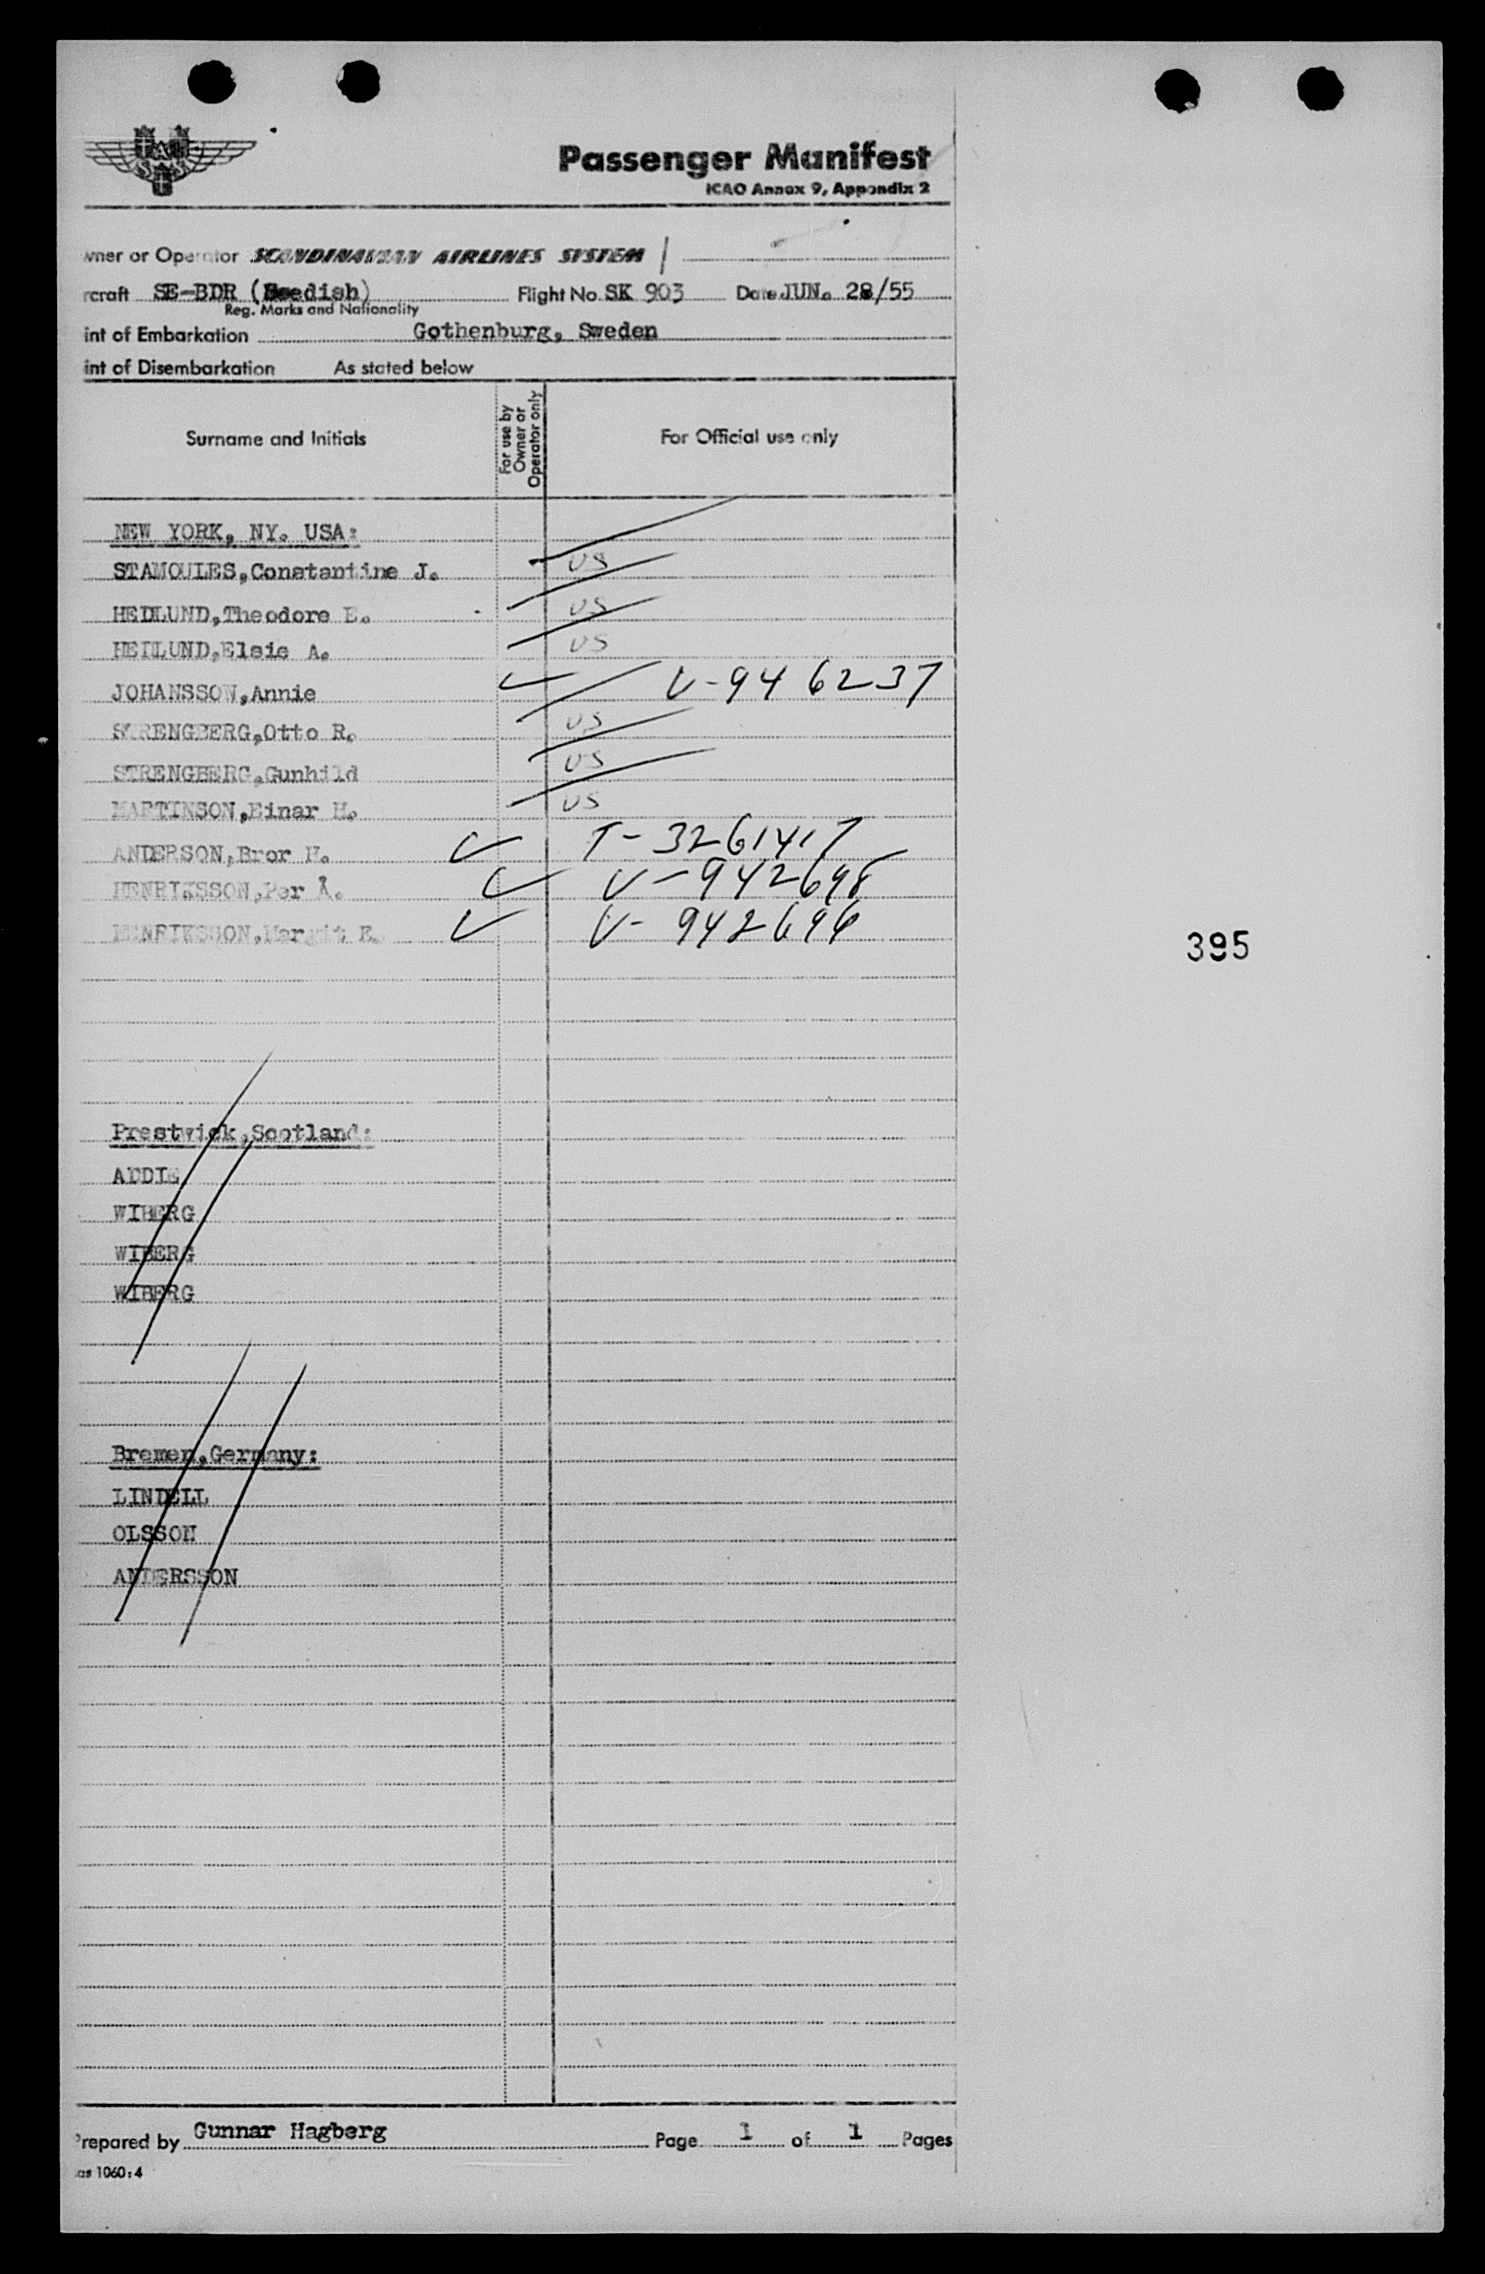 Passenger Manifest
ICAO Annex 9, Appendix 2
wner or Operator SCANDINAVIAN AIRLINES SYSTEM
rcraft SE-BDR (Swedish) Flight No. SK 903 Date JUN. 28/55
Reg. Marks and Nationality
int of Embarkation Gothenburg, Sweden
int of Disembarkation As stated below
Surname and Initials For use by Owner or Operator only For Official use only
NEW YORK, NY. USA:
STAMOULES,Constantine J. US
HEDLUND,Theodore E. US
HEDLUND,Elsie A. US
JOHANSSON,Annie V-946237
STRENGBERG,Otto R. US
STRENGBERG,Gunhild US
MARTINSON,Einar H. US
ANDERSON,Bror H. T-3261417
HENRIKSSON,Per Å. V-942698
HENRIKSSON,Margit E. V-942696
395
Prestwick,Scotland:
ADDIE
WIBERG
WIBERG
WIBERG
Bremen,Germany:
LINDELL
OLSSON
ANDERSSON
Prepared by Gunnar Hagberg Page 1 of 1 Pages
as 1060:4